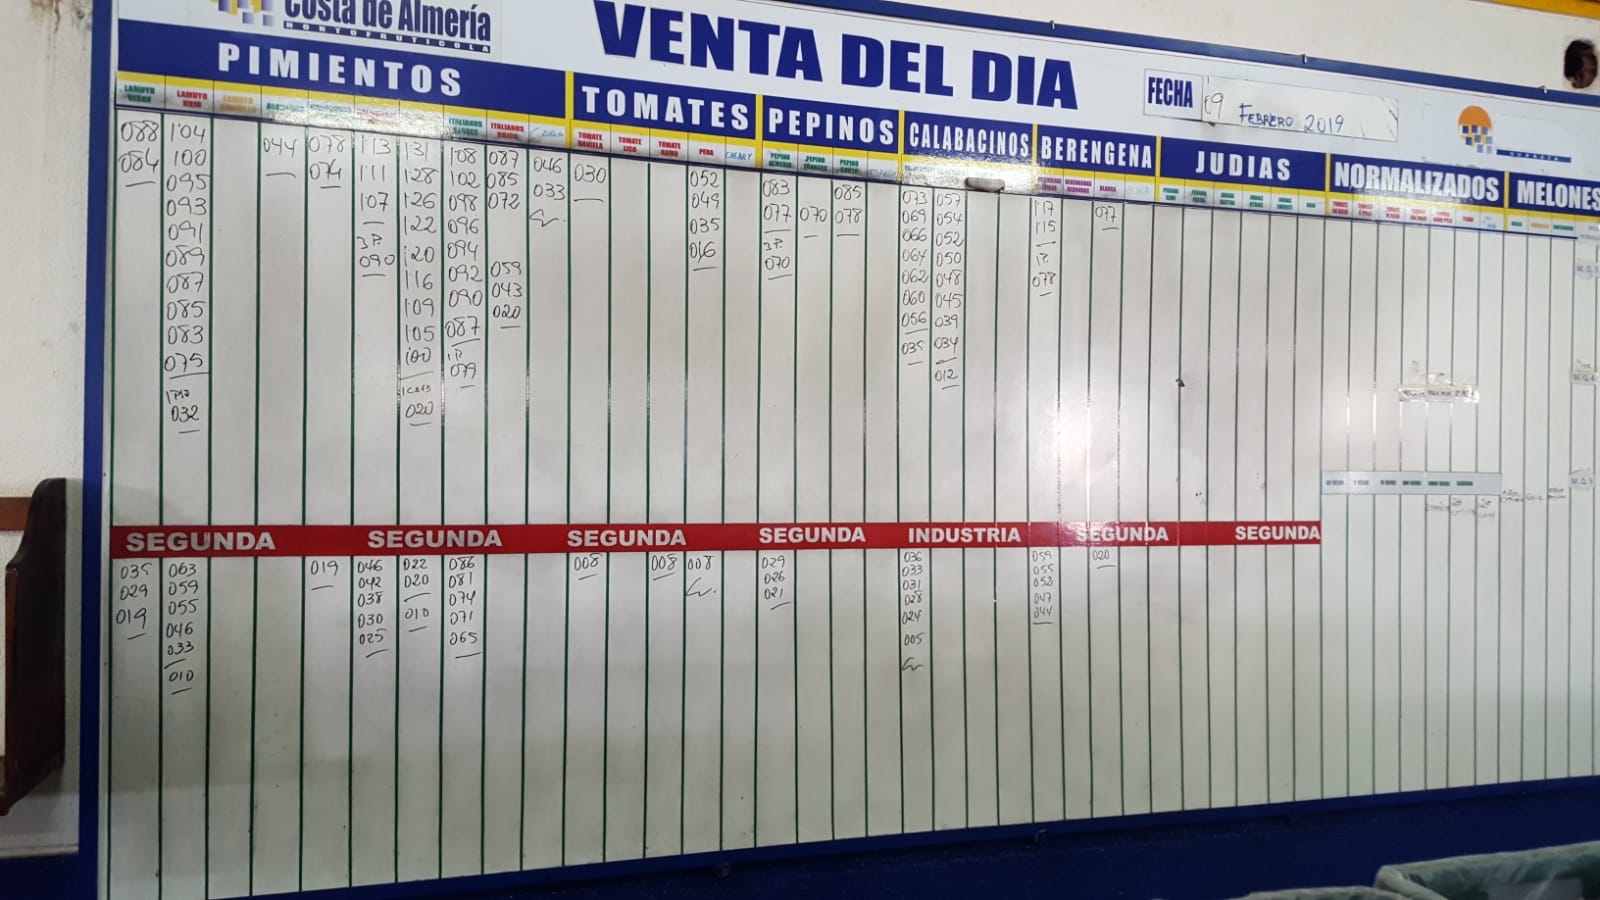 Costa de Almería
HORTOFRUTICOLA
VENTA DEL DIA
FECHA
09 FEBRERO 2019
PIMIENTOS
TOMATES
PEPINOS
CALABACINOS
BERENGENA
JUDIAS
NORMALIZADOS
MELONES
LAMUYO VERDE
088
084
LAMUYO ROJO
1'04
100
095
093
091
089
087
085
083
075
032
044
078
074
113
111
107
3P.
090
131
128
126
122
120
116
109
105
100
020
ITALIANOS VERDES
108
102
098
096
094
092
090
087
1P
079
ITALIANOS ROJOS
087
085
072
059
043
020
046
033
TOMATE DANIELA
030
TOMATE LISO
TOMATE RAMO
PERA
052
049
035
016
PEPINO ALMERIA
083
077
3P.
070
PEPINO FRANCES
070
PEPINO CORTO
085
078
073
069
066
064
062
060
056
035
057
054
052
050
048
045
039
034
012
117
115
1P.
078
BLANCA
077
SEGUNDA
SEGUNDA
SEGUNDA
SEGUNDA
INDUSTRIA
SEGUNDA
SEGUNDA
035
029
019
063
059
055
046
033
010
019
046
042
038
030
025
022
020
010
086
081
074
071
065
008
008
008
029
026
021
036
033
031
028
024
005
059
055
052
047
044
020